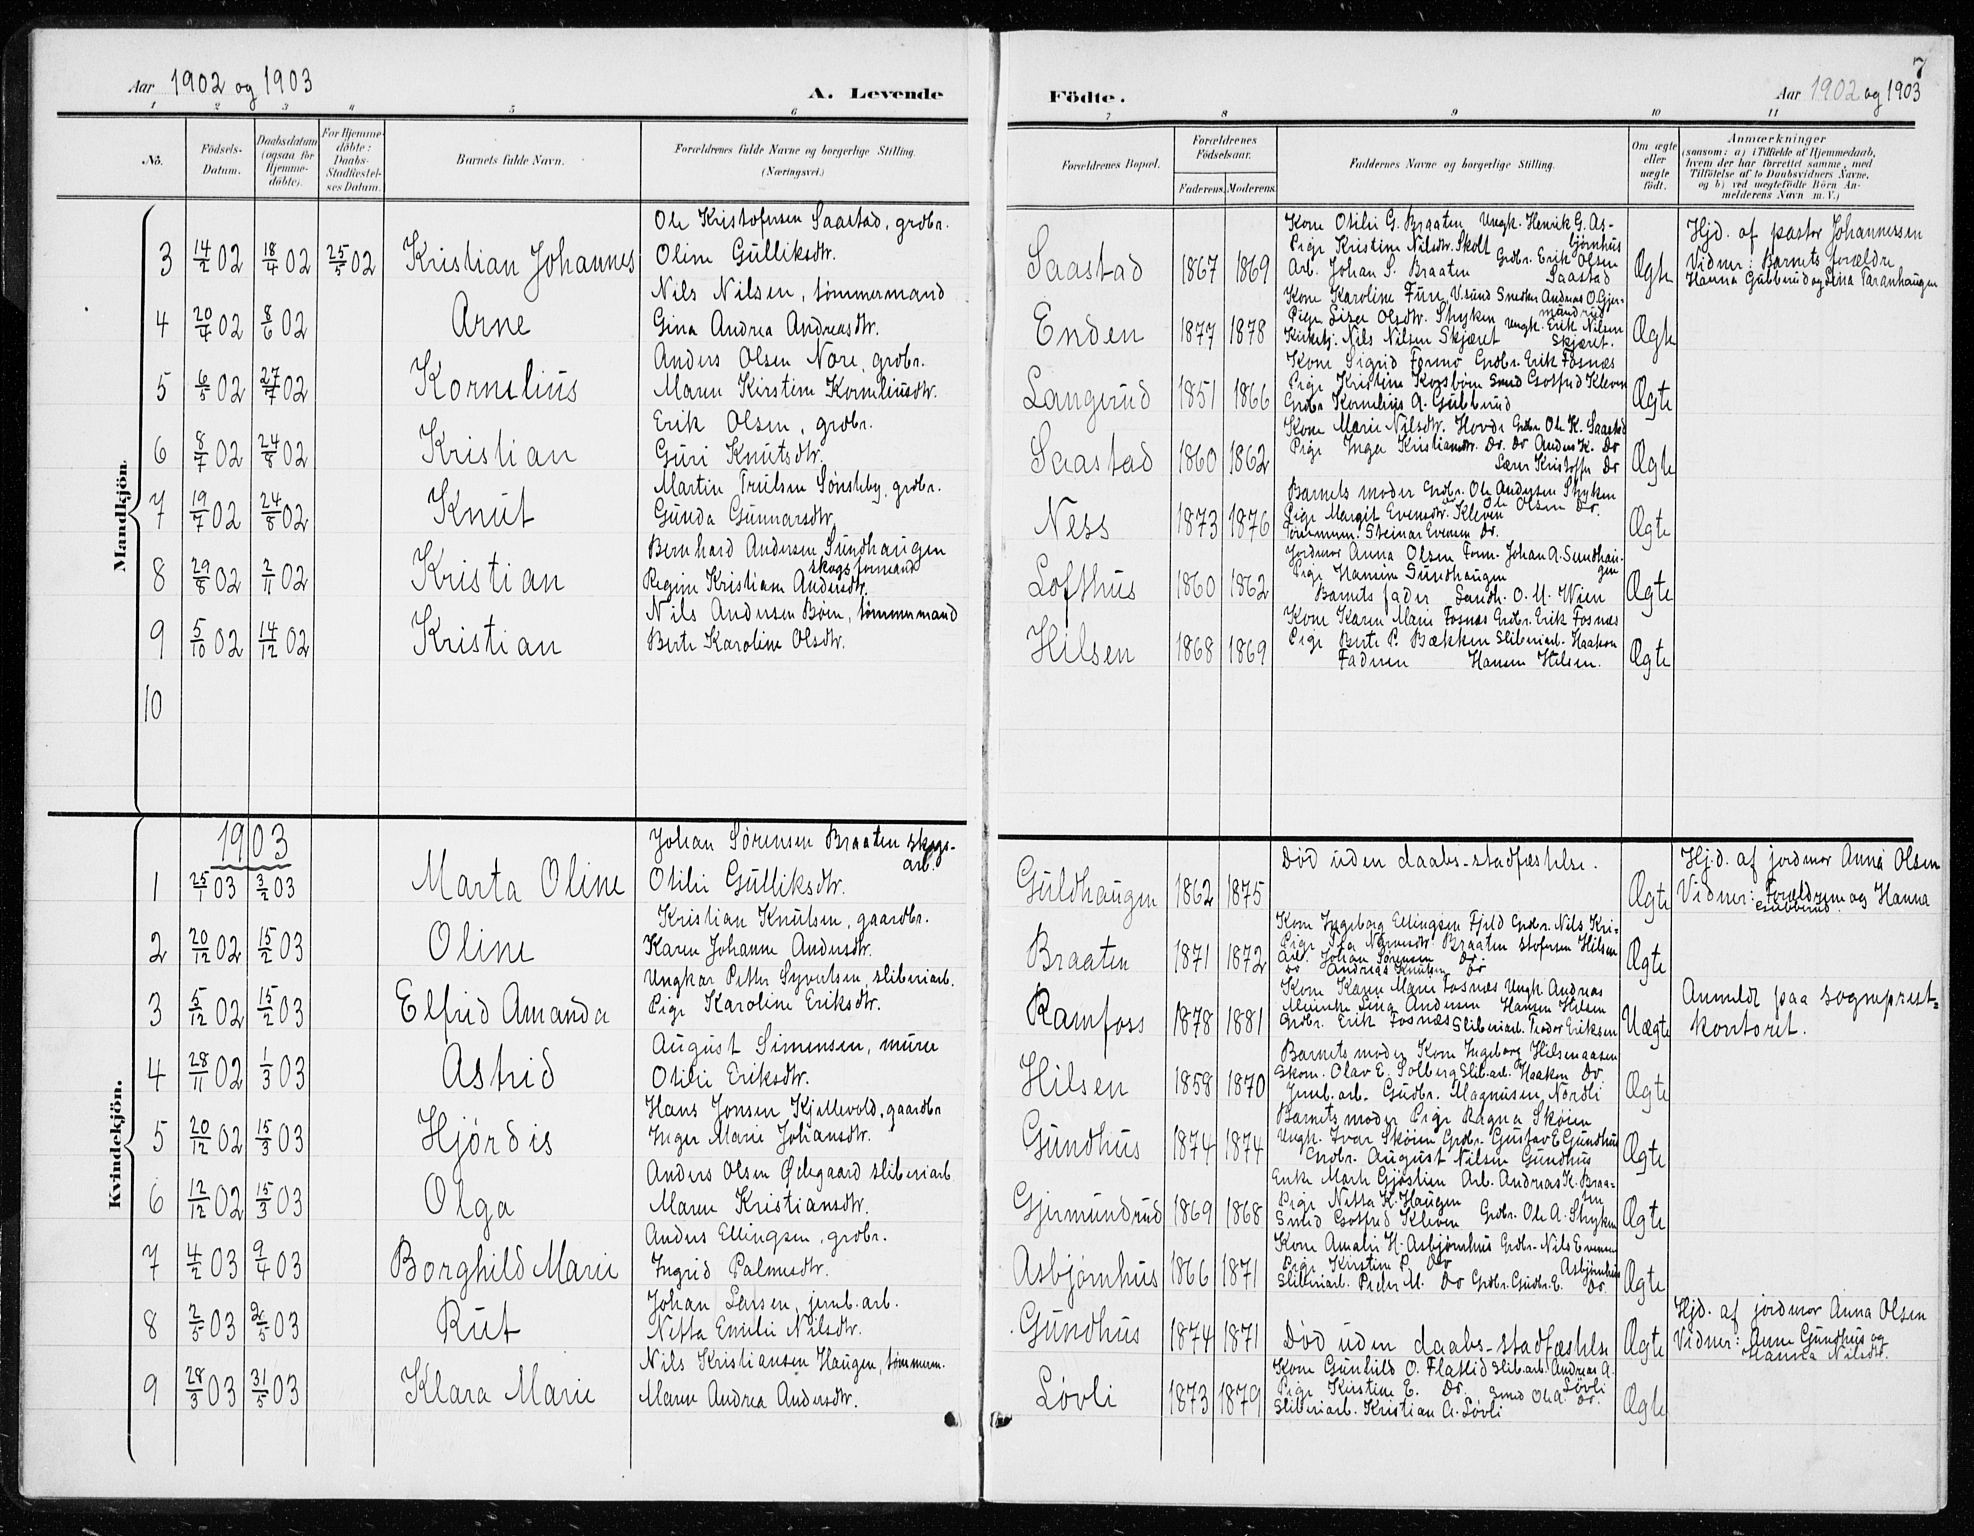 7
Aar 1902 og 1903 A. Levende Födte. Aar 1902 og 1903
1 2 3 4 5 6 7 8 9 10 11
No. Födsels-Datum. Daabsdatum (ogsaa for Hjemmedöbte). For Hjemmedöbte: Daabs-Stadfæstelses Datum. Barnets fulde Navn. Forældrenes fulde Navne og borgerlige Stilling. (Næringsvei.) Forældrenes Bopæl. Forældrenes Födselsaar. Faderens. Moderens. Faddernes Navne og borgerlige Stilling. Om ægte eller uægte födt. Anmærkninger (saasom: a) i Tilfælde af Hjemmedaab, hvem der har forrettet samme, med Tilföielse af to Daabsvidners Navne, og b) ved uegtefödte Börn Anmelderens Navn m. V.)
Mandkjön.
Ole Kristofersen Saastad, grdbr.
3 14/2 02 18/4 02 25/5 02 Kristian Johannes Oline Gulliksdtr. Saastad 1867 1869 Ægte
Kone Otilie G. Braaten Ungk. Henrik G. Asbjörnhus
Pige Kristine Nilsdtr. Skolt Grdbr. Erik Olsen Saastad
Arb. Johan S. Braaten
Hjd. af pastor Johannessen
Vidner: Barnets forældre
Hanna Gubberud og Lina Taranhaugen
Nils Nilsen, tømmermand
4 20/4 02 8/6 02 Arne Gina Andrea Andreasdtr. Enden 1877 1878 Ægte
Kone Karoline Fure, V.sund Snedker Andreas O. Gjermundrud
Pige Lisa Olsdtr. Stryken Ungk. Erik Nilsen Skjæret.
Kirketj. Nils Nilsen Skjæret
Anders Olsen Nore, grdbr.
5 6/5 02 27/7 02 Kornelius Maren Kirstine Korneliusdtr. Langerud 1851 1866 Ægte
Kone Sigrid Formo Grdbr. Erik Fosnæs
Pige Kristine Korsbøen Smed Gotfred Kleven
Grdbr. Kornelius A. Gubberud
Erik Olsen, grdbr.
6 8/7 02 24/8 02 Kristian Guri Knutsdtr. Saastad 1860 1862 Ægte
Kone Marie Nilsdtr. Hovde Grdbr. Ole K. Saastad
Pige Inga Kristiansdtr. Do. Do Anders K. Do
Lars Kristoffer Do
Martin Trulsen Sønsteby, grdbr.
7 19/7 02 24/8 02 Knut Gunda Gunnarsdtr. Ness 1873 1876 Ægte
Barnets moder Grdbr. Ole Andersen Stryken
Pige Margit Evensdtr. Kleven Ole Olsen Do.
Tømmerm. Steinar Evensen Do.
Bernhard Andersen Sundhaugen skogsformand
8 29/8 02 2/11 02 Kristian Regine Kristiane Andersdtr. Lofthus 1860 1862 Ægte
Jordmor Anna Olsen Form. Johan A. Sundhaugen
Pige Hansine Sundhaugen
Barnets fader Landh. O. M. Wien
Nils Andersen Bøen, tømmermand
9 5/10 02 14/12 02 Kristian Berte Karoline Olsdtr. Hilsen 1868 1869 Ægte
Kone Karen Marie Fosnæs Grdbr. Erik Fosnæs
Pige Berte P. Bækken Sliberiarb. Haakon
Faderen Hansen Hilsen.
10
Kvindekjön.
1903
Johan Sørensen Braaten skogsarb.
1 25/1 03 3/2 03 Marta Oline Otilie Gulliksdtr. Guldhaugen 1862 1875 Ægte
Død uden daabs-stadfæstelse.
Hj.d. af jordmor Anna Olsen
Vidner: Forældrene og Hanna Gubberud.
Kristian Knutsen, gaardbr.
2 20/12 02 15/2 03 Oline Karen Johanne Andersdtr. Braaten 1871 1872 Ægte
Kone Ingeborg Ellingsen Fjeld Grdbr. Nils Kristofersen Hilsen
Arb. Johan Sørensen Do.
Do Andreas Knutsen Do
Ungkar Petter Syvertsen, sliberiarb.
3 5/12 02 15/2 03 Elfrid Amanda Pige Karoline Eriksdtr. Ramfoss 1878 1881 Uægte
Kone Karen Marie Fosnæs Ungk. Andreas
Lina Andersen Hansen Hilsen
Grdbr. Erik Fosnæs Sliberiarb. Teodor Eriksen
Anmeldt paa sogneprestkontoret.
August Simensen, murer
4 28/11 02 1/3 03 Astrid Otilie Eriksdtr. Hilsen 1858 1870 Ægte
Barnets moder Kone Ingeborg Hilsenaasen
Skom. Olav E. Solberg Slib.arb. Haakon Do
Jernb.arb. Gudbr. Magnusen Nordli
Hans Jonsen Kjellevold, gaardbr
5 20/12 02 15/3 03 Hjördis Inger Marie Johansdtr. Gundhus 1874 1874 Ægte
Barnets moder Pige Ragna Skøien
Ungk. Ivar Skøien Grdbr. Gustav E Gundhus
Grdbr. August Nilsen Gundhus
Anders Olsen Ødegaard sliberiarb
6 12/12 02 15/3 03 Olga Maren Kristiansdtr. Gjermundrud 1869 1868 Ægte
Enke Marte Gjøstien Arb. Andreas K. Braaten
Pige Netta K. Haugen
Smed Gotfred Kleven Grdbr. Ole A. Stryken
Anders Ellingsen, grdbr.
7 4/2 03 9/4 03 Borghild Marie Ingrid Palmesdtr. Asbjørnhus 1866 1871 Ægte
Kone Amalie H. Asbjørnhus Grdbr. Nils Evensen Asbjørnhus
Pige Kirstine P. Do
Sliberiarb. Peder M. Do Grdbr. Gudbr. E. Do.
Johan Larsen, jernb.arb.
8 2/5 03 2/5 03 Rut Netta Emilie Nilsdtr. Gundhus 1874 1871 Ægte
Død uden daabs-stadfæstelse
Hjd. af jordmor Anna Olsen
Vidner: Anne Gundhus og
Hanna Nilsdtr.
Nils Kristiansen Haugen, tømmerm.
9 28/3 03 31/5 03 Klara Marie Maren Andrea Andersdtr. Løvli 1873 1879 Ægte
Kone Gunhild O. Flatlid Slib.arb. Andreas A. Løvli
Pige Kirstine E. Do. Smed Ole A. Do.
Sliberiarb. Kristian A. Løvli